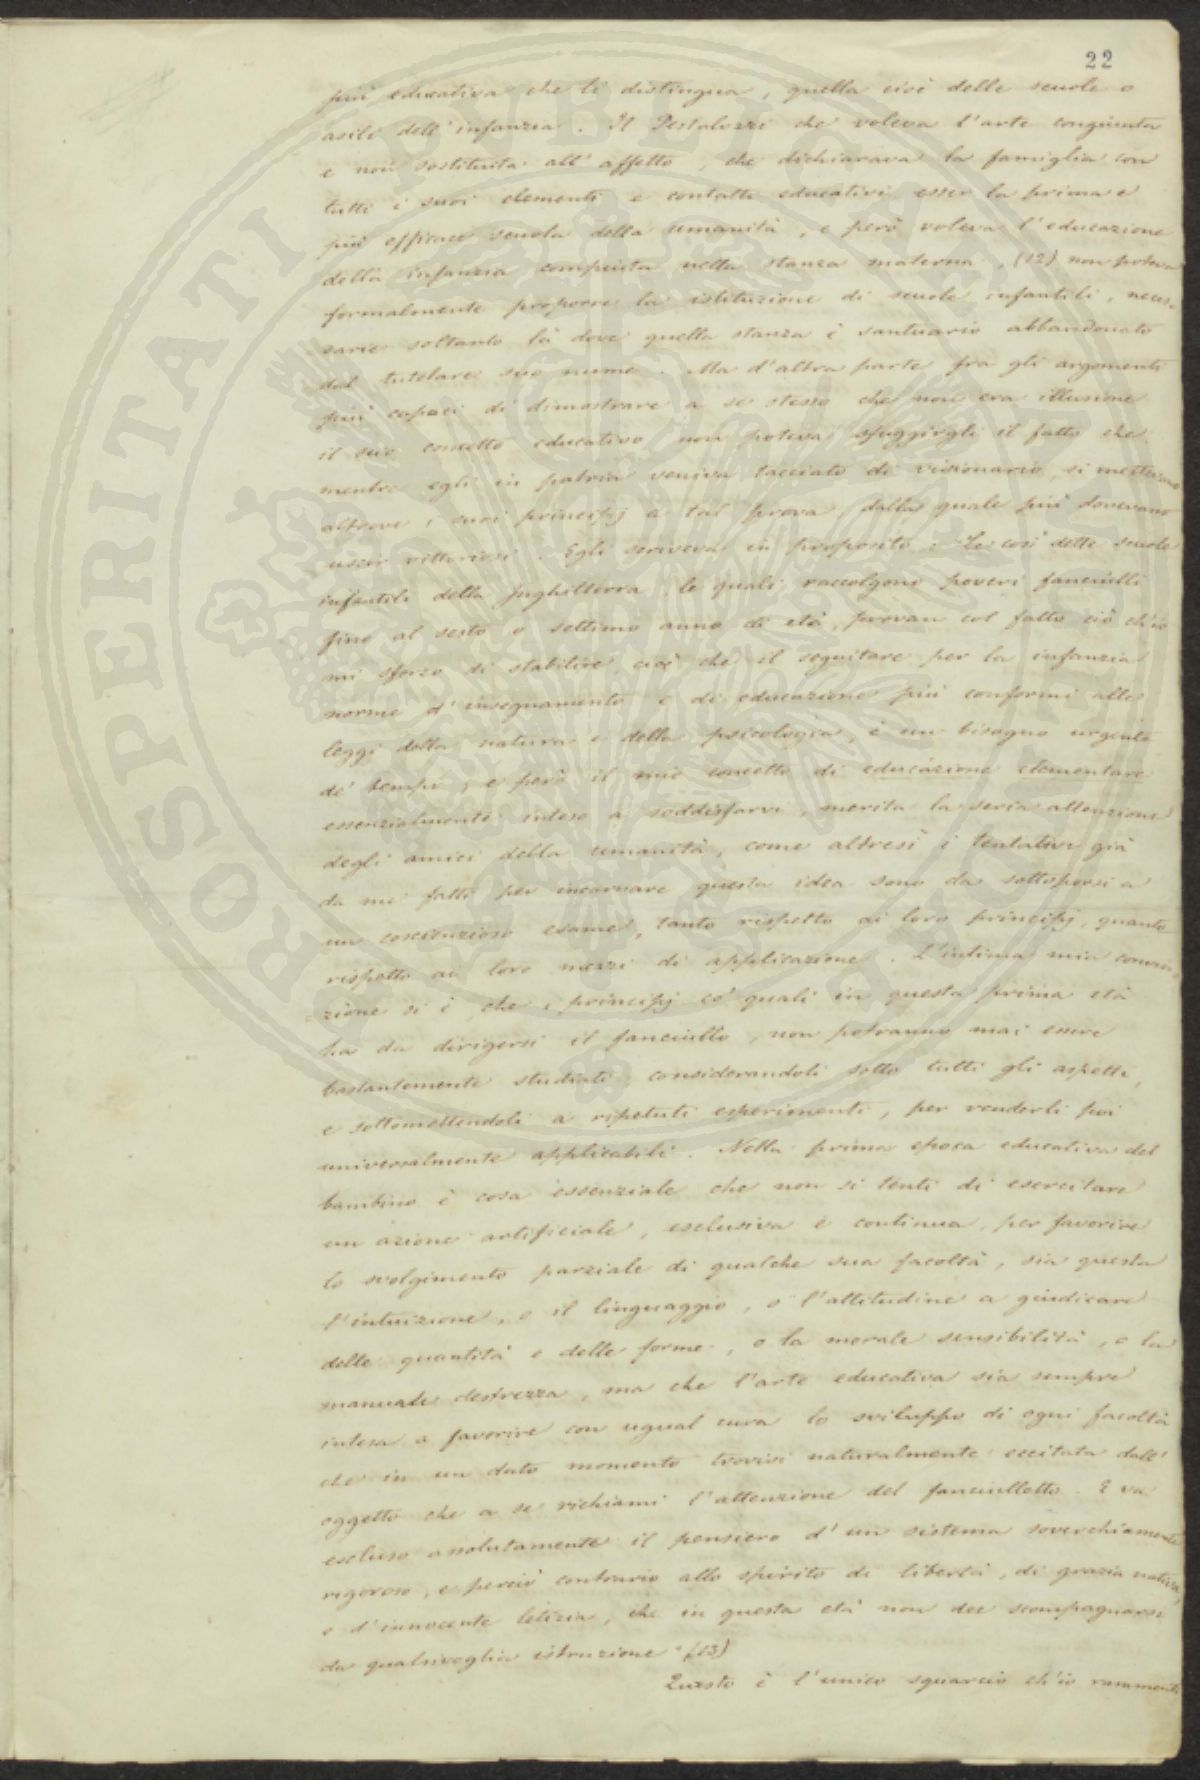 22
più educativa che li distingua, quella cioè delle scuole o
asili dell'infanzia. Il Pestalozzi che voleva l'arte congiunta
e non sostituita all'affetto, che dichiarava la famiglia con
tutti i suoi elementi e contatti educativi esser la prima e
più efficace scuola della umanità, e però voleva l'educazione
della infanzia compiuta nella stanza materna, (12) non poteva
formalmente proporre la istituzione di scuole infantili, neces-
sarie soltanto là dove quella stanza è santuario abbandonato
dal tutelare suo nume. Ma d'altra parte fra gli argomenti
più capaci di dimostrare a se stesso che non era illusione
il suo concetto educativo non poteva sfuggirgli il fatto che
mentre egli in patria veniva tacciato di visionario, si mettevano
altrove i suoi principj a tal prova dalla quale più dovevano
uscir vittoriosi. Egli scriveva in proposito: "Le così dette scuole
infantili della Inghilterra le quali raccolgono poveri fanciulli
fino al sesto o settimo anno di età, provan col fatto ciò ch'io
mi sforzo di stabilire, cioè che il seguitare per la infanzia
norme d'insegnamento e di educazione più conformi alle
leggi della natura e della psicologia, è un bisogno urgente
de' tempi, e però il mio concetto di educazione elementare
essenzialmente inteso a soddisfarvi, merita la seria attenzione
degli amici della umanità, come altresì i tentativi già
da me fatti per incarnare questa idea sono da sottoporsi a
un coscienzioso esame, tanto rispetto ai loro principj, quanto
rispetto ai loro mezzi di applicazione. L'intima mia convin-
zione si è, che i principj co' quali in questa prima età
ha da dirigersi il fanciullo, non potranno mai essere
bastantemente studiati, considerandoli sotto tutti gli aspetti,
e sottomettendoli a ripetuti esperimenti, per renderli poi
universalmente applicabili. Nella prima epoca educativa del
bambino è cosa essenziale che non si tenti di esercitare
un azione artificiale, esclusiva e continua, per favorire
lo svolgimento parziale di qualche sua facoltà, sia questa
l'intuizione, o il linguaggio, o l'attitudine a giudicare
delle quantità e delle forme, o la morale sensibilità, o la
manuale destrezza, ma che l'arte educativa sia sempre
intesa a favorire con ugual cura lo sviluppo di ogni facoltà
che in un dato momento trovisi naturalmente eccitata dall'
oggetto che a se richiami l'attenzione del fanciulletto. E va
escluso assolutamente il pensiero d'un sistema soverchiamente
rigoroso, e perciò contrario allo spirito di libertà, di grazia nativa,
e d'innocente letizia, che in questa età non dee scompagnarsi
da qualsivoglia istruzione" (13)
Questo è l'unico squarcio ch'io rammenti
PROSPERITATI PUBLICAE